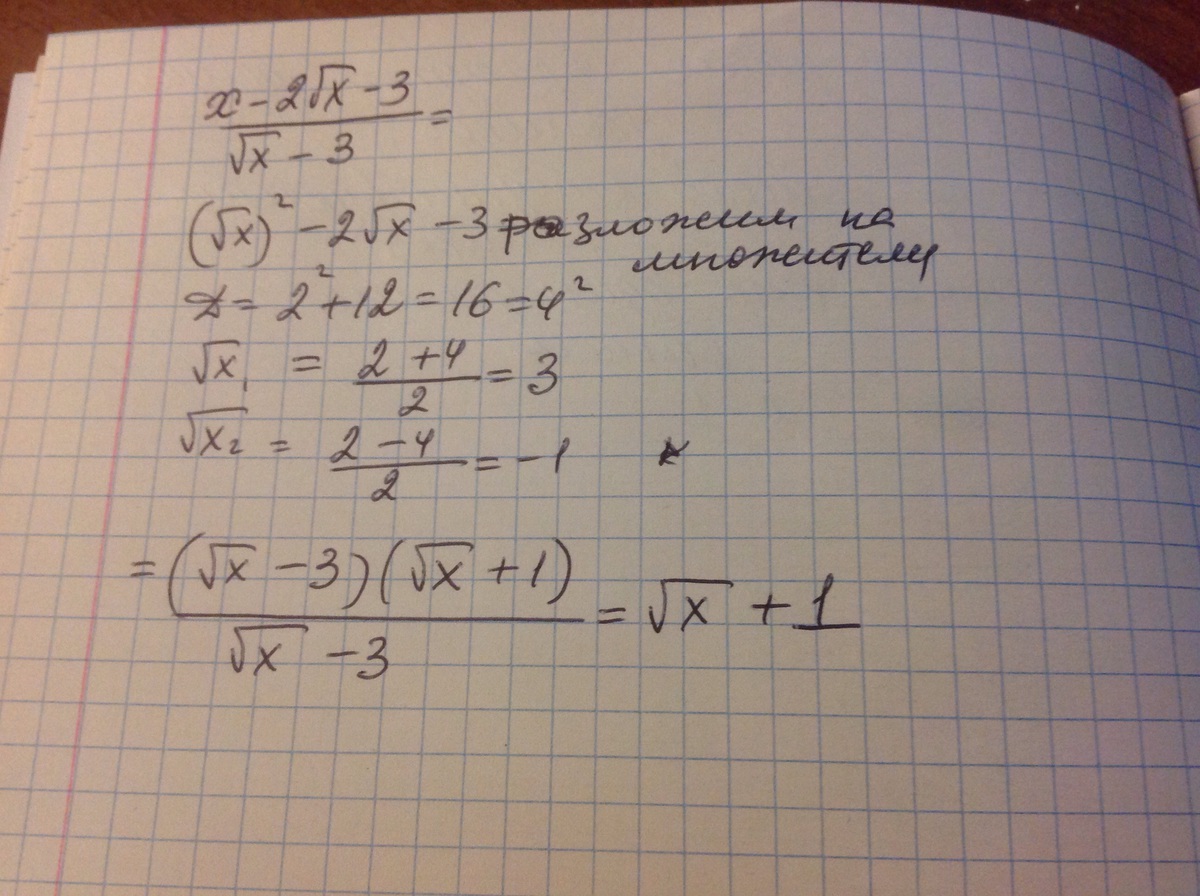 x - 2√x - 3 / √x - 3 =
(√x)² - 2√x - 3 разложим на
множители
D = 2² + 12 = 16 = 4²
√x₁ = 2 + 4 / 2 = 3
√x₂ = 2 - 4 / 2 = -1
= (√x - 3)(√x + 1) / √x - 3 = √x + 1